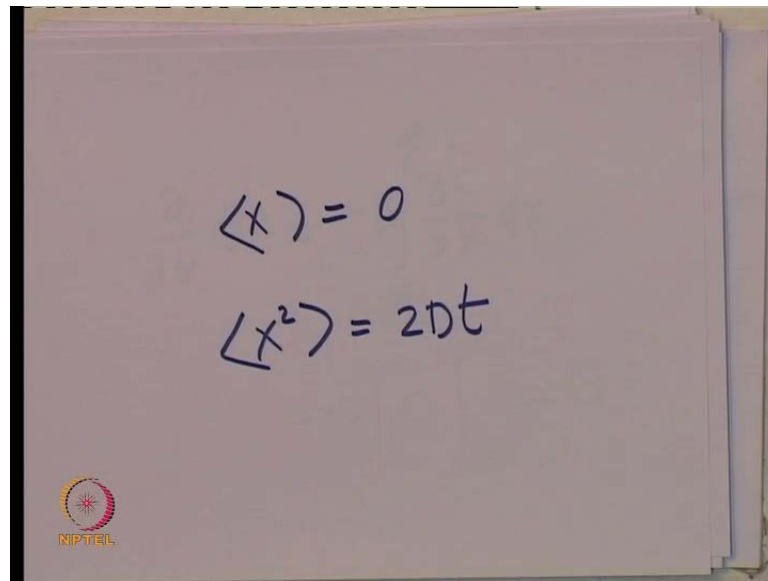 ⟨x⟩ = 0
⟨x²⟩ = 2Dt
NPTEL